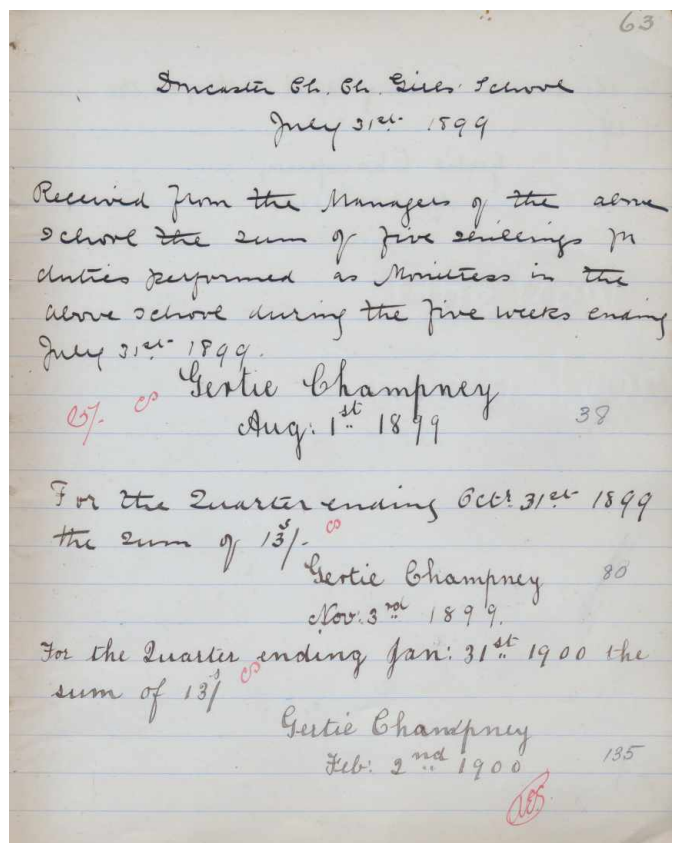 63
Doncaster Ch. Ch. Girls' School
July 31st 1899
Received from the Managers of the above
School the sum of five shillings for
duties performed as Monitress in the
above school during the five weeks ending
July 31st 1899.
Gertie Champney
5/-
Aug: 1st 1899
38
For the Quarter ending Octr 31st 1899
the sum of 13s/-
Gertie Champney
80
Nov: 3rd 1899.
For the Quarter ending Jan: 31st 1900 the
sum of 13s/
Gertie Champney
Feb: 2nd 1900
135